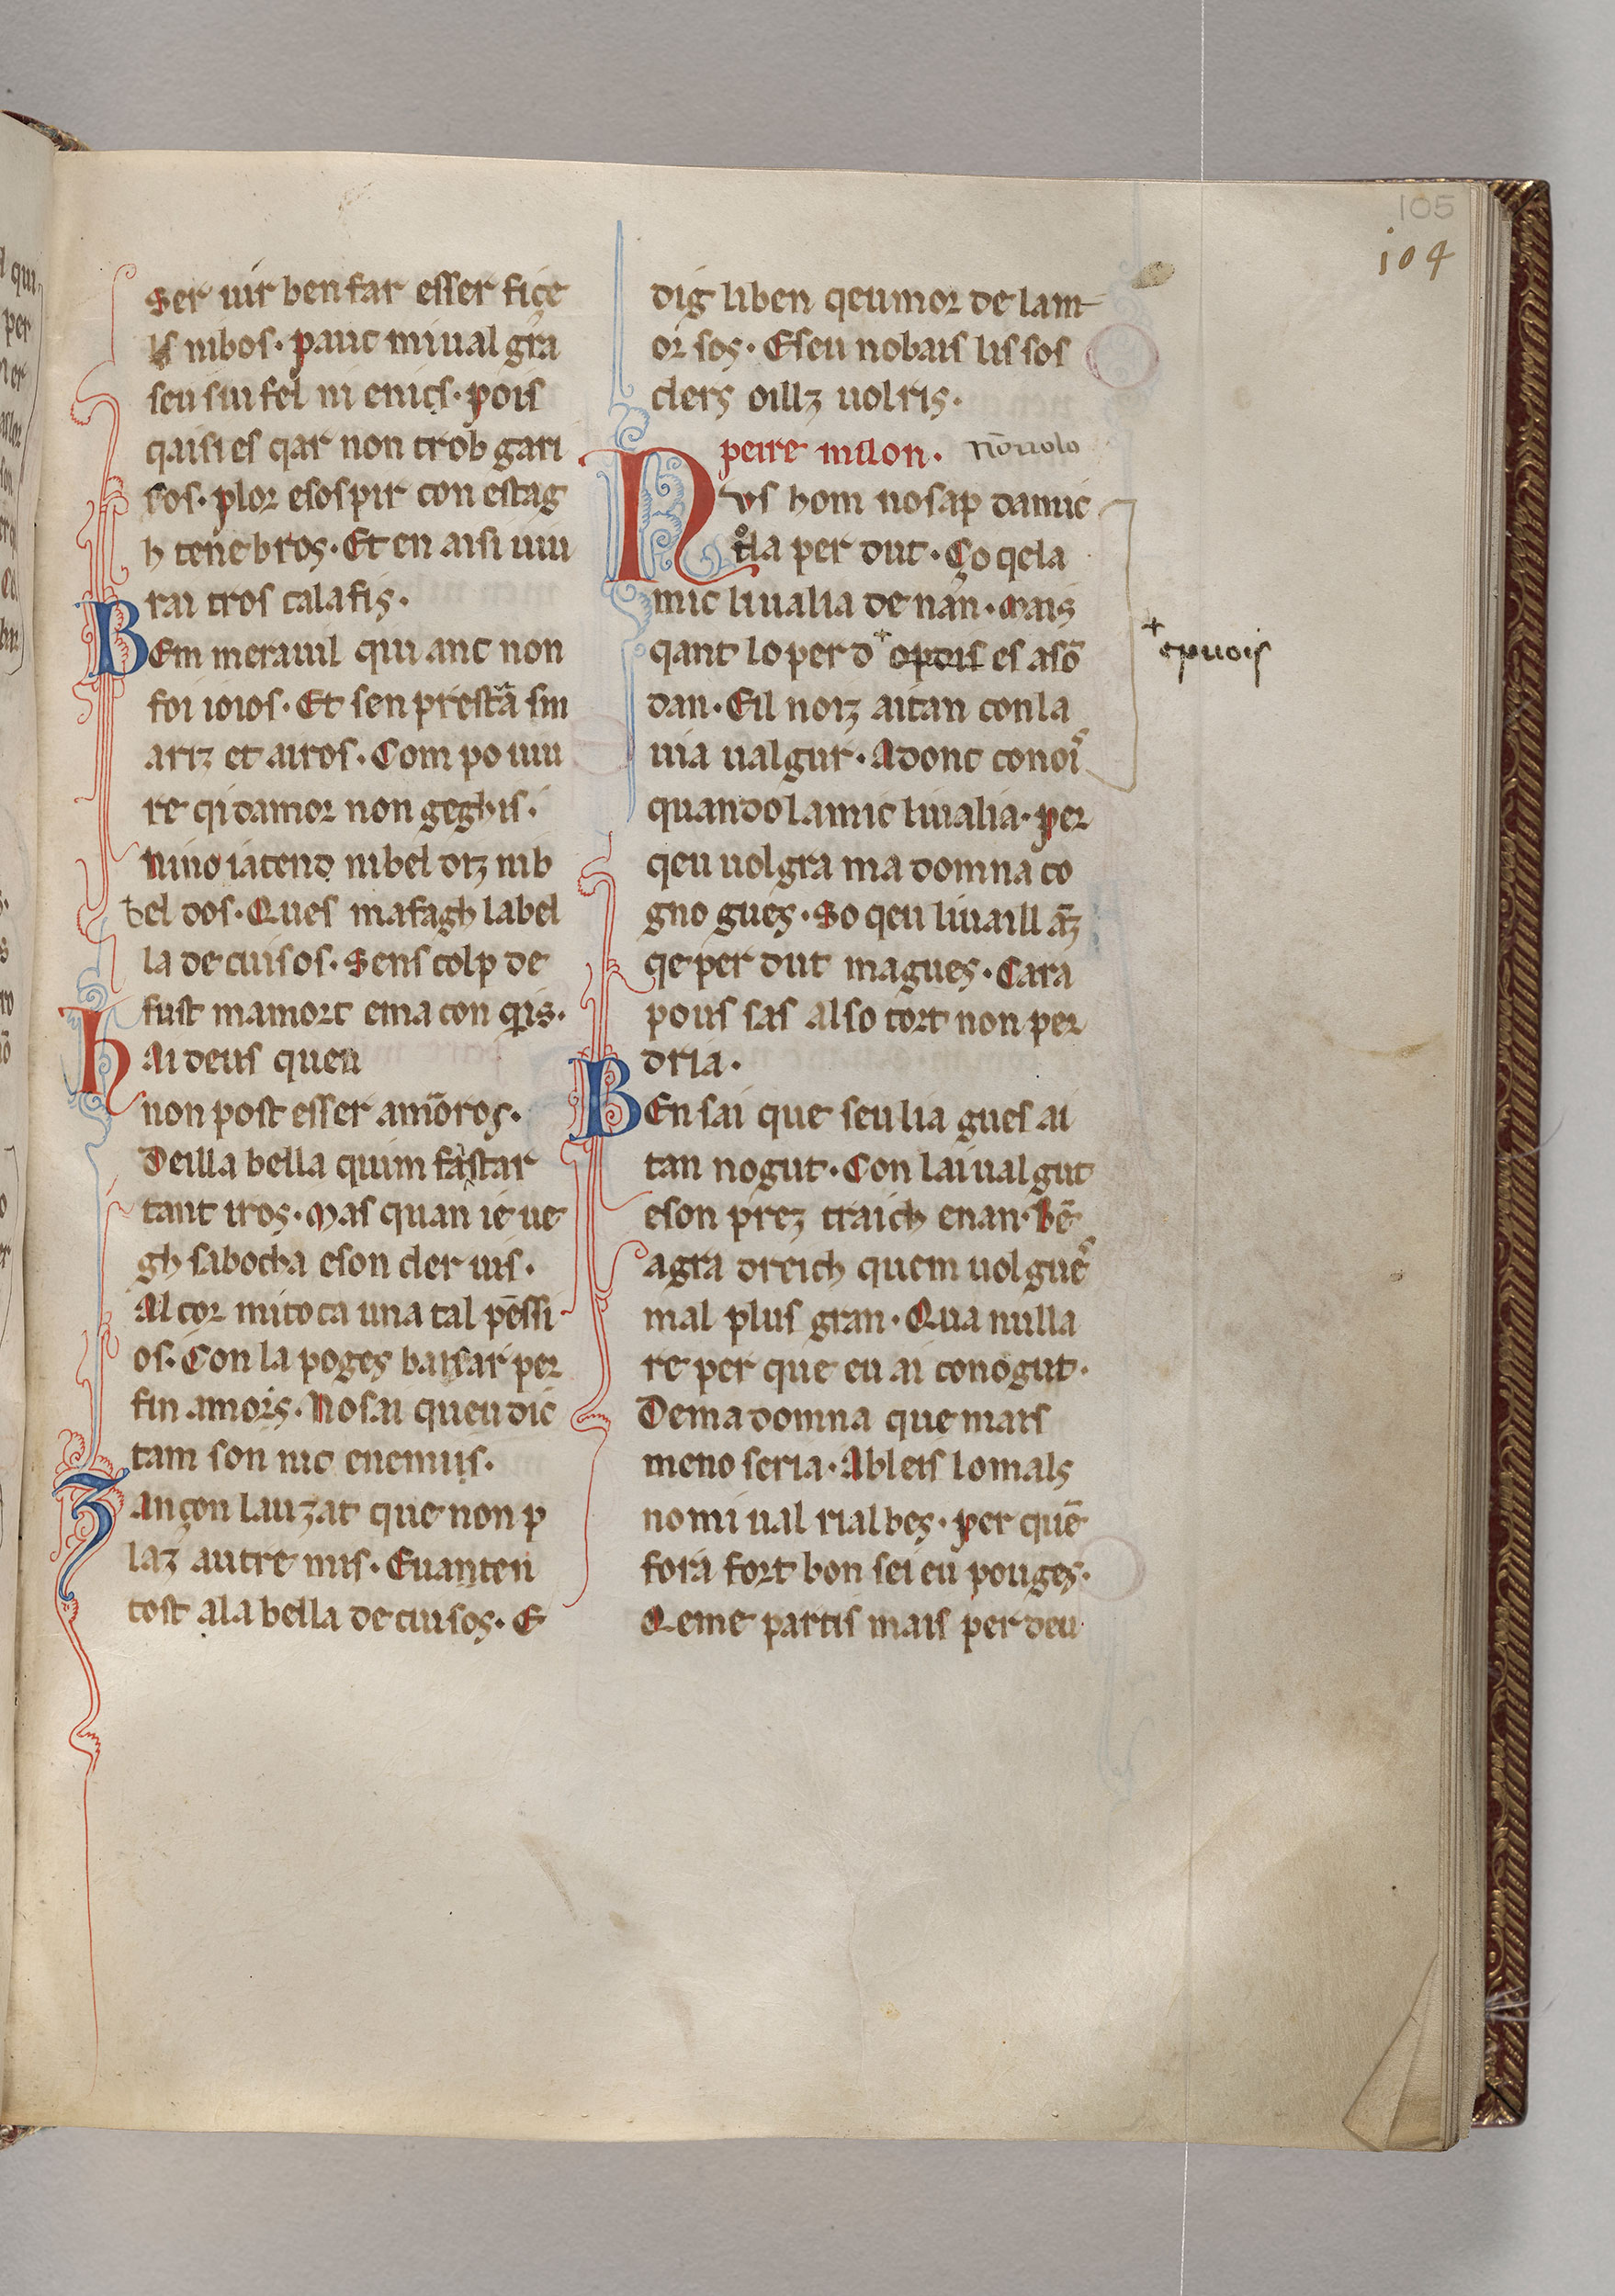 105
104
Ser uir ben far esser fiçe
ls nibos. pauc miual gra
seu sui fel ni enics. pois
qaisi es qar non trob gari
sos. plor esospir con estag
h tenebros. Et en aisi uiu
rai tros calafis.
BEm merauil qui anc non
foi ioios. Et sen prestā sin
ariz et airos. Com po uiu
re qi damor non geghis.
Nino iatend nibel orz nib
bel dos. Ques mafagh label
la de cui sos. Sens colp de
fust mamort ema con qis.
hAi deus queu
non post esser amōros.
Deilla bella quim fa star
tant iros. Mas quan ie ue
gh sabocha eson cler uis.
Al cor mi toca una tal pēssi
os. Con la poges baisar per
fin amors. No sai queu dic
tam son nic enemis.
ZAnçon lauzat que non p
laz autre mis. Euanten
tost ala bella de cui sos. E
dig liben qeumor de lam
or sos. Eseu nobais lis sos
clers oillz uol ris.
peire milon. nō uolo
NUs hom no sap damic
tro la per dut. Ço qela
mic li ualia de nan. Mais
qant lo perd opois es a sō
dan. Eil noiz aitan con la
uia ualgut. Adonc conois
quando lamic li ualia. per
qeu uolgra ma domna co
gno gues. So qeu li uaill āz
qe per dut magues. Cara
pois sas al so tort non per
dria.
BEn sai que seu lia gues ai
tan nogut. Con lai ual gut
eson prez traich enan. bē
agra dreich quem uol gues
mal plus gran. Qua nulla
re per que eu ai conogut.
De ma domna que mais
meno seria. Ab leis lo mals
no mi ual ri al bes. per quē
fora fort bon sei eu pouges.
Qe me partis mais per deu
+ epuois